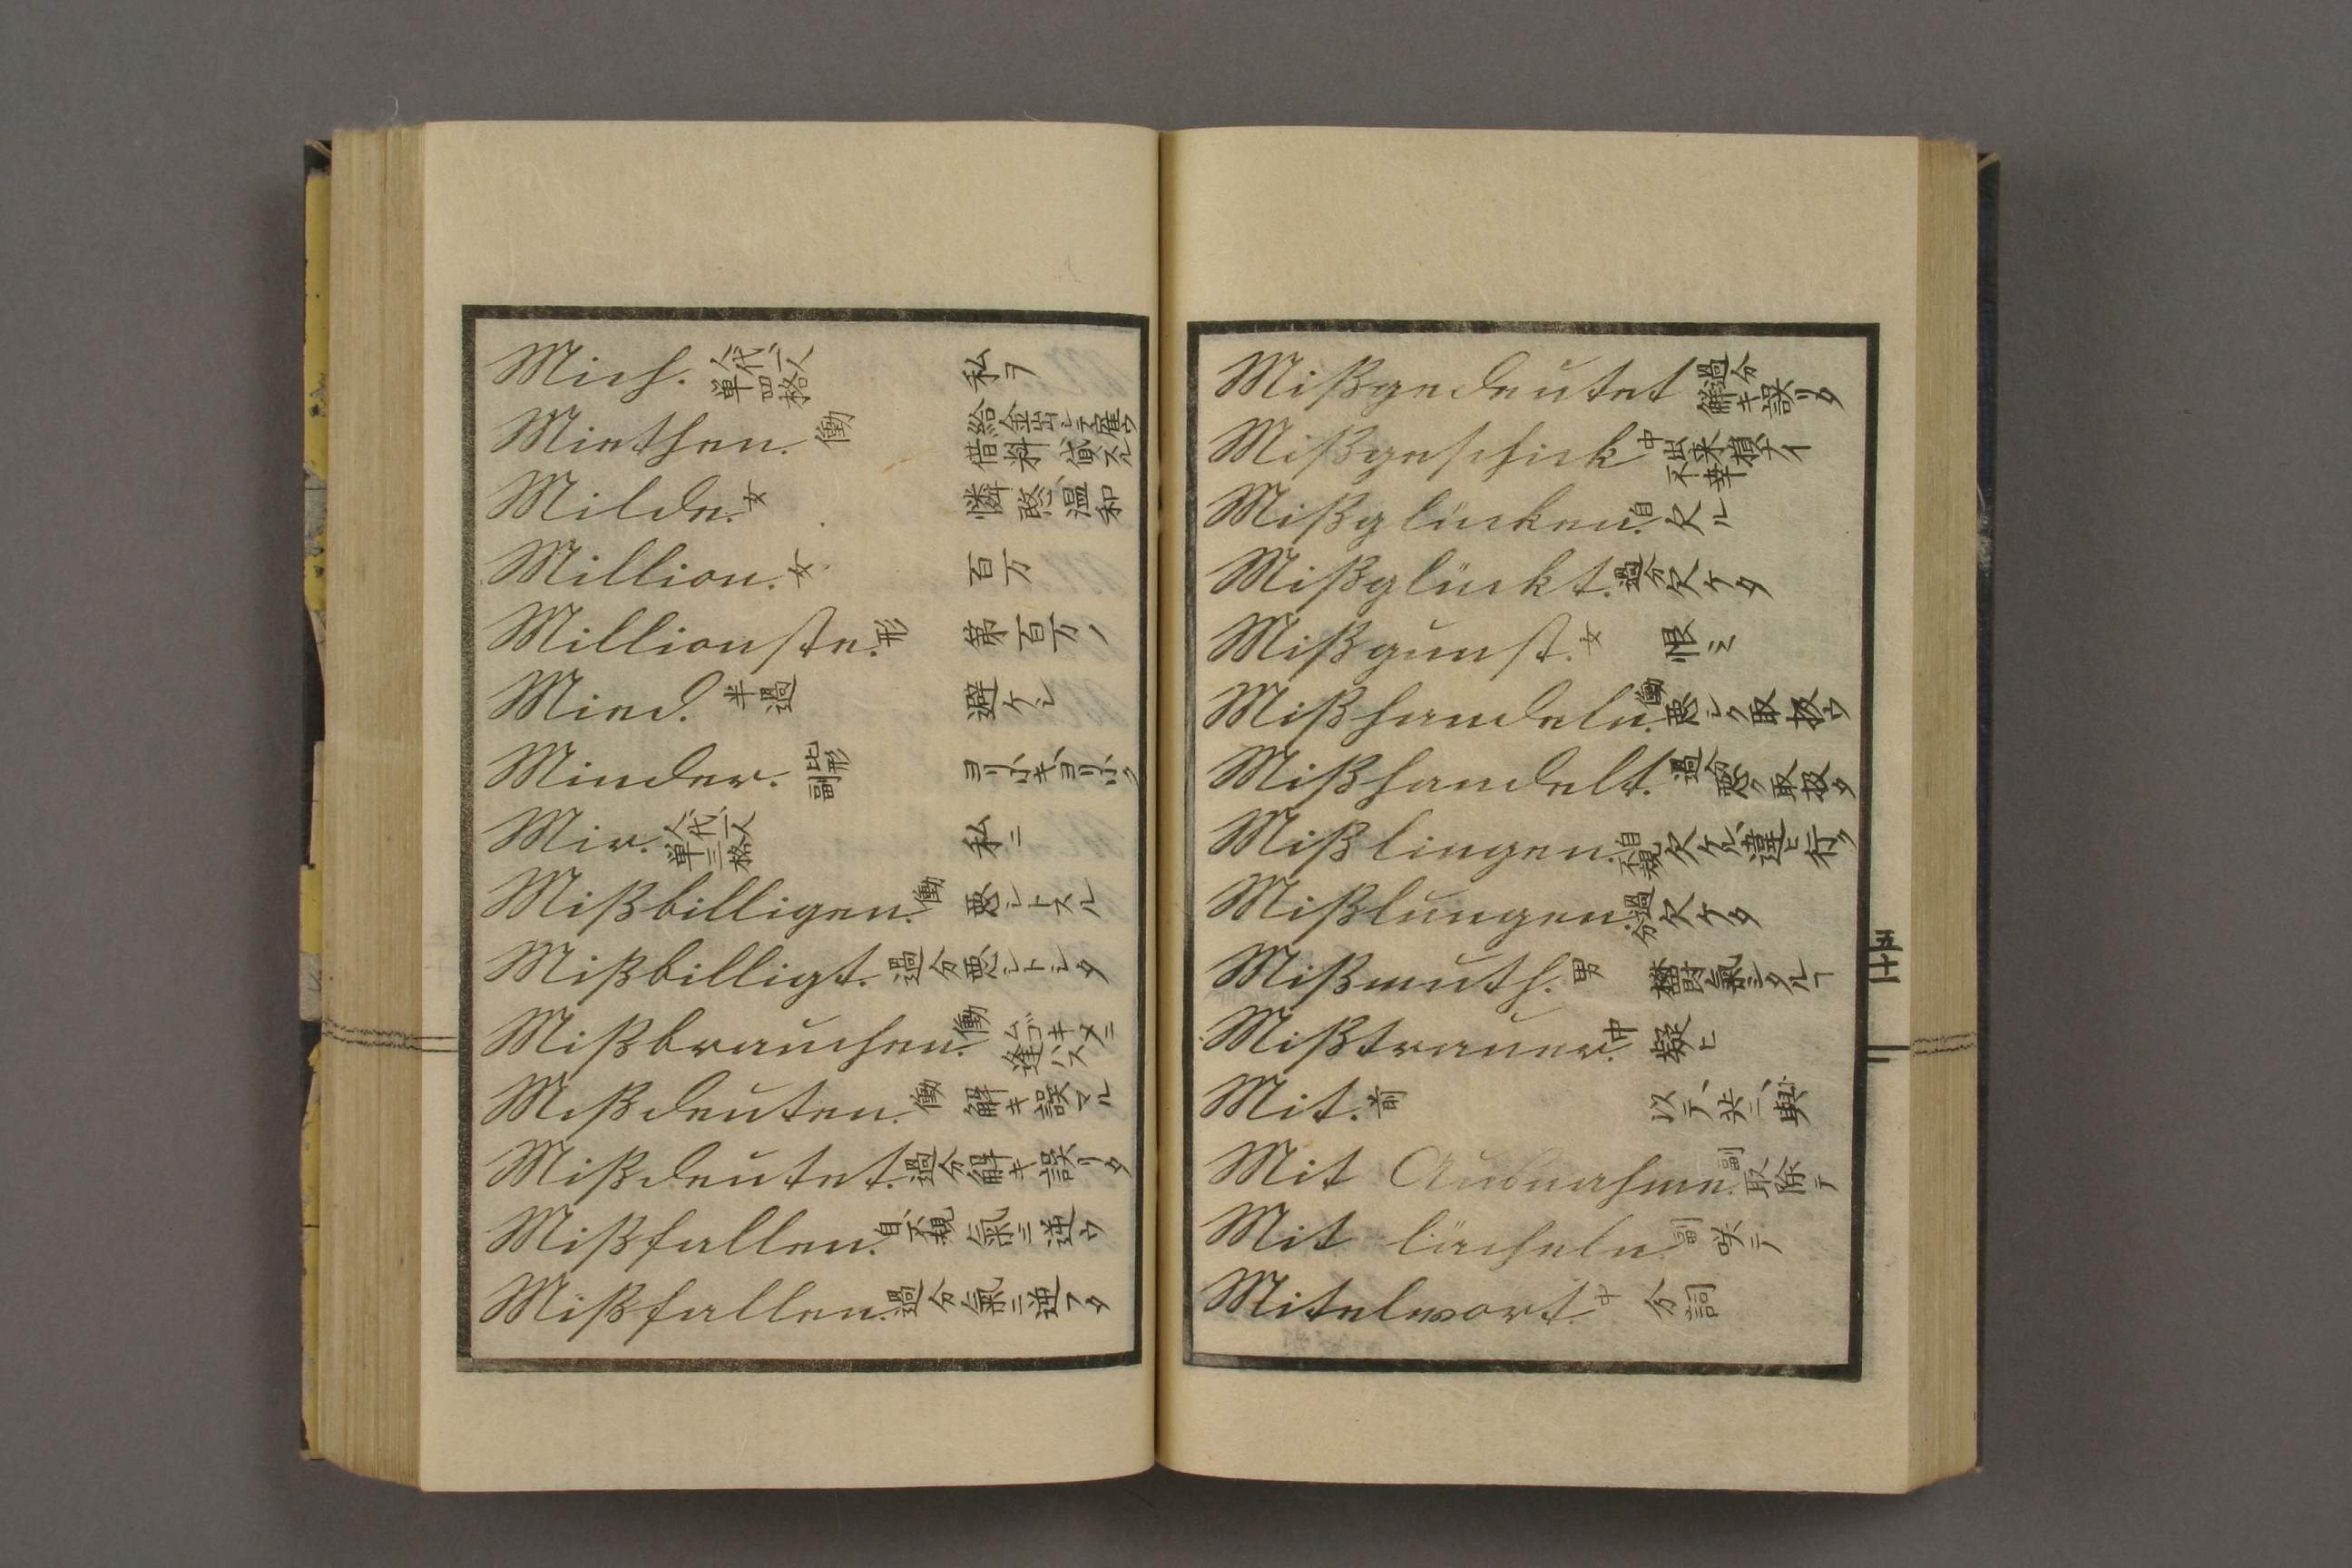 Mich. 人代、一人 単四格 私ヲ
Miethen. 働 給金出シテ雇ウ 借料 貸スル
Milde. 女 憐愍、温和
Million. 女 百万
Millionste. 形 第百万ノ
Mied. 半過 避ケシ
Minder. 比形 副 ヨリ小キ、ヨリ小ク
Mir. 人代、一人 単三格 私ニ
Mißbilligen. 働 悪シトスル
Mißbilligt. 過分 悪シトシタ
Mißbrauchen. 働
Mißdeuten. 働 解キ誤マル
Mißdeutet. 過分 解キ誤リタ
Mißfallen. 自、不規 氣ニ逆ウ
Mißfallen. 過分 氣ニ逆フタ
Mißgedeutet 過分 解キ誤リタ
Mißgeschick 中 出来損ナイ 不幸
Mißglücken. 自 欠ル
Mißglückt. 過分 欠ケタ
Mißgunst. 女 恨ミ
Mißhandeln. 働 悪シク取扱ウ
Mißhandelt. 過分 悪ク取扱タ
Mißlingen. 自 不規 欠ケル、違ヒ行ク
Mißlungen. 過分 欠ケタ
Mißmuth. 男
Mißtrauen. 中 擬ヒ
Mit. 前 以テ、共ニ、與ニ
Mit Ausnahme. 副 取除テ
Mit lächeln. 副 咲テ
Mitelwort. 中 分詞
五十一